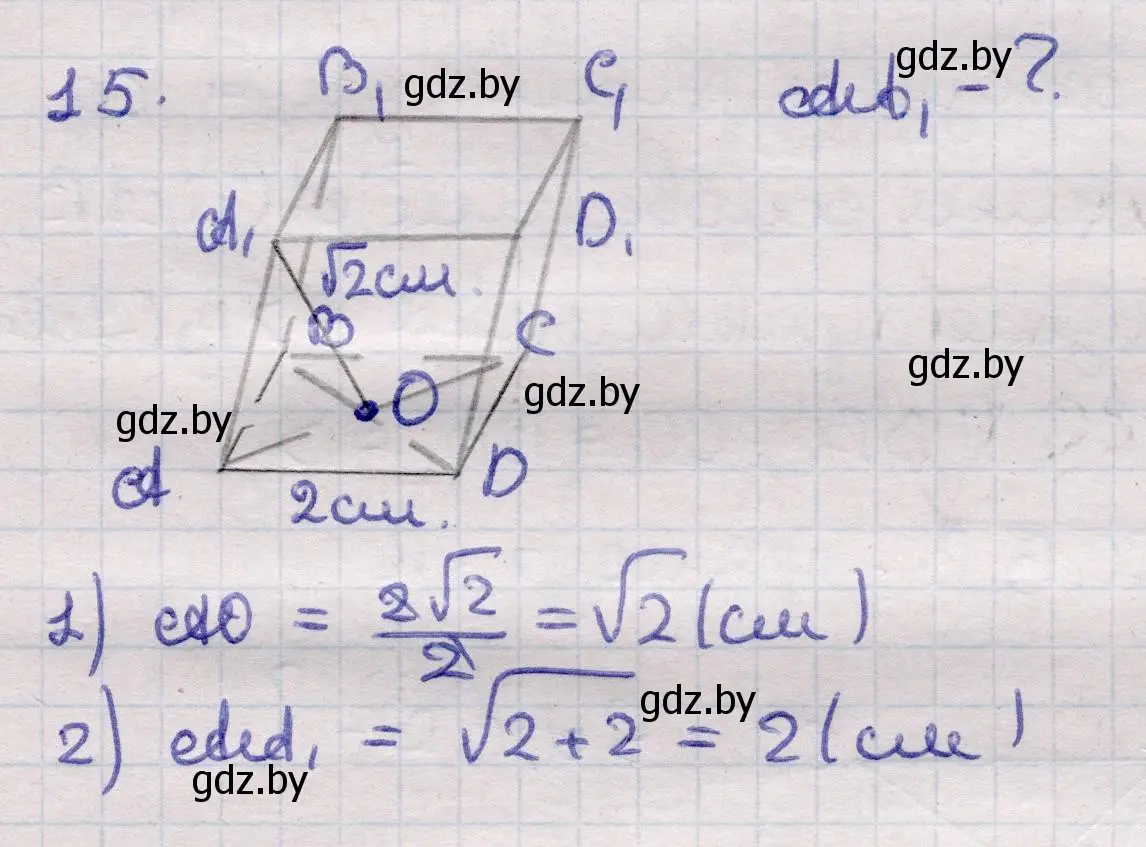 15. B₁ gdz.by C₁ AA₁ - ? gdz.by
A₁ D₁
√2 см.
B C
gdz.by gdz.by gdz.by
O
A D
2 см.
1) AO = 2√2/2 = √2 (см)
2) AA₁ = √2+2 = 2 (см)
gdz.by
gdz.by